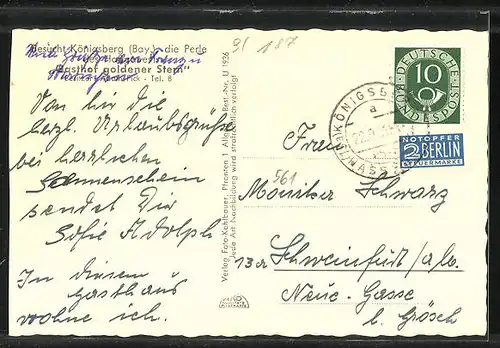 Besucht Königsberg (Bay.) - die Perle
Gasthof goldener Stern"
- Tel. 8
9/ 187
Von hier die
herzl. Urlaubsgrüße
bei herrlichem
Sonnenschein
sendet Dir
Sofie Adolph
In diesem
Gasthaus
wohne ich.
Verlag Foto-Kohlbauer, Pfronten 1 Allgäu - Best.-Nr. U 1926
Jede Art Nachbildung wird strafrechtlich verfolgt
DEUTSCHE
BUNDESPOST
10
KÖNIGSB
a
NOTOPFER
2 BERLIN
STEUERMARKE
Frau
561
Schwarz
13a Schweinfurt/a/M.
Neue-Gasse
b. Grösch